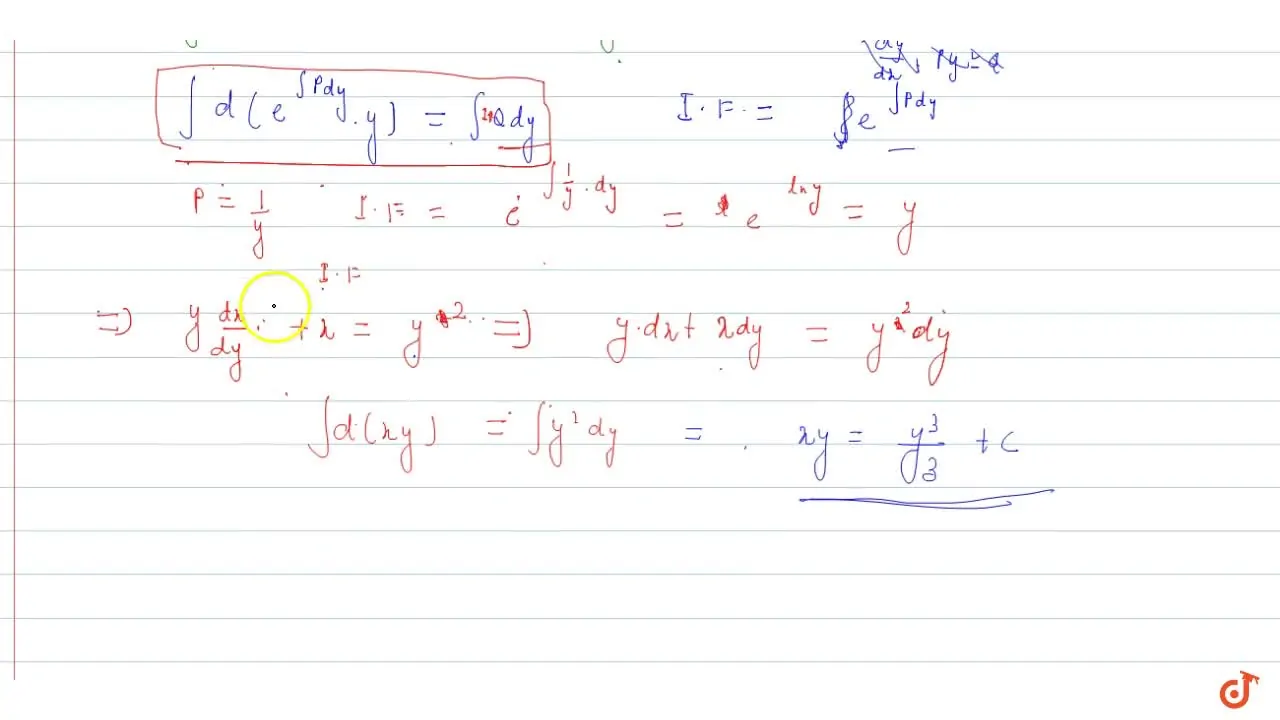 dy/dx + Py = Q
∫ d(e^∫Pdy . y) = ∫ Q dy
I.F. = e^∫Pdy
P = 1/y I.F = e^∫1/y . dy = e^ln y = y
I.F
⇒ y dx/dy + x = y² ⇒ y.dx + x dy = y² dy
∫d(xy) = ∫y² dy = xy = y³/3 + c